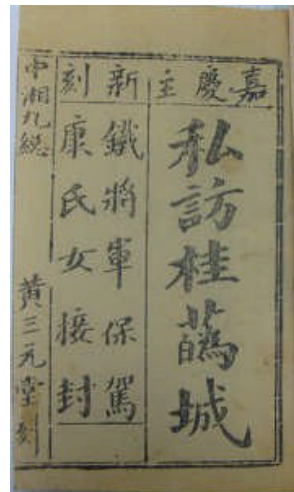 嘉慶主
私訪桂城
新刻
鐵將軍保駕
康氏女接封
中湘九總 黃三元堂刻